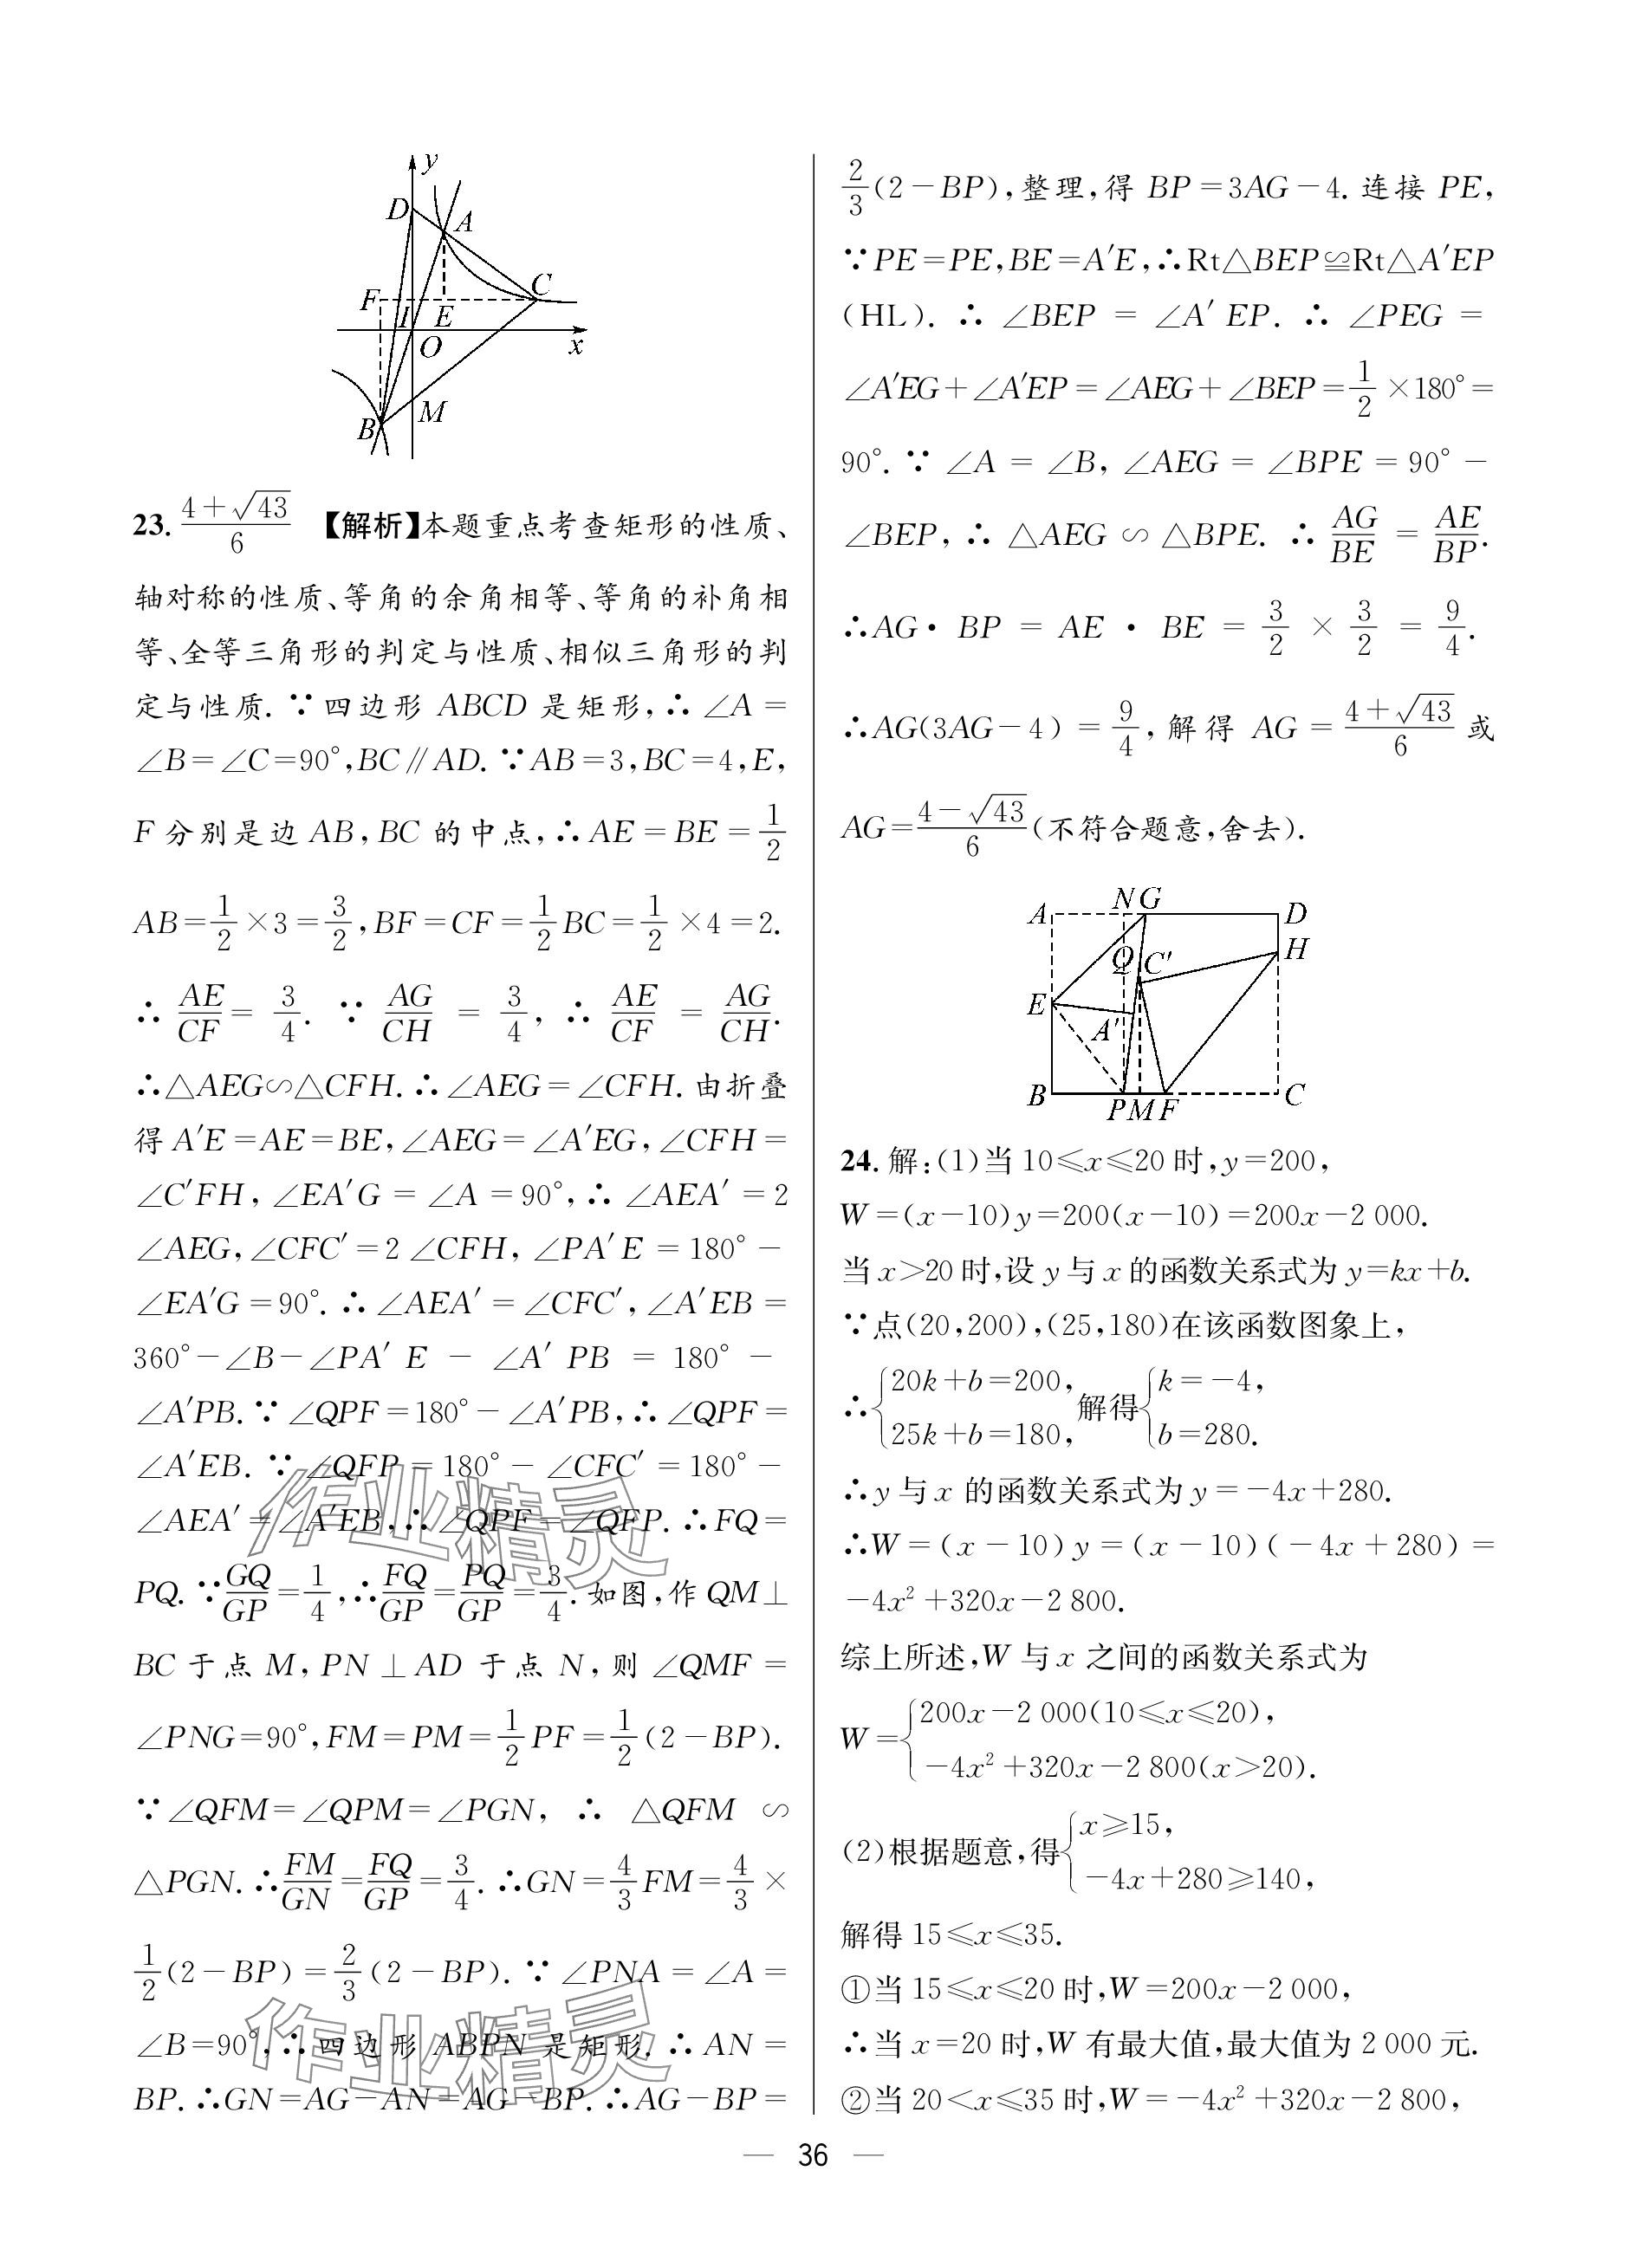 y
D
A
C
F
I
E
O
x
M
B
23. \frac{4+\sqrt{43}}{6} 【解析】本题重点考查矩形的性质、
轴对称的性质、等角的余角相等、等角的补角相
等、全等三角形的判定与性质、相似三角形的判
定与性质. ∵四边形 ABCD 是矩形,∴∠A=
∠B=∠C=90°,BC∥AD. ∵AB=3,BC=4,E,
F 分别是边 AB,BC 的中点,∴AE=BE=\frac{1}{2}
AB=\frac{1}{2}×3=\frac{3}{2},BF=CF=\frac{1}{2}BC=\frac{1}{2}×4=2.
∴\frac{AE}{CF}=\frac{3}{4}. ∵\frac{AG}{CH}=\frac{3}{4},∴\frac{AE}{CF}=\frac{AG}{CH}.
∴△AEG∽△CFH. ∴∠AEG=∠CFH. 由折叠
得 A′E=AE=BE,∠AEG=∠A′EG,∠CFH=
∠C′FH,∠EA′G=∠A=90°,∴∠AEA′=2
∠AEG,∠CFC′=2∠CFH,∠PA′E=180°-
∠EA′G=90°. ∴∠AEA′=∠CFC′,∠A′EB=
360°-∠B-∠PA′E-∠A′PB=180°-
∠A′PB. ∵∠QPF=180°-∠A′PB,∴∠QPF=
∠A′EB. ∵∠QFP=180°-∠CFC′=180°-
∠AEA′=∠A′EB,∴∠QPF=∠QFP. ∴FQ=
PQ. ∵\frac{GQ}{GP}=\frac{1}{4},∴\frac{FQ}{GP}=\frac{PQ}{GP}=\frac{3}{4}. 如图,作 QM⊥
BC 于点 M,PN⊥AD 于点 N,则∠QMF=
∠PNG=90°,FM=PM=\frac{1}{2}PF=\frac{1}{2}(2-BP).
∵∠QFM=∠QPM=∠PGN,∴△QFM∽
△PGN. ∴\frac{FM}{GN}=\frac{FQ}{GP}=\frac{3}{4}. ∴GN=\frac{4}{3}FM=\frac{4}{3}×
\frac{1}{2}(2-BP)=\frac{2}{3}(2-BP). ∵∠PNA=∠A=
∠B=90°,∴四边形 ABPN 是矩形. ∴AN=
BP. ∴GN=AG-AN=AG-BP. ∴AG-BP=
\frac{2}{3}(2-BP),整理,得 BP=3AG-4. 连接 PE,
∵PE=PE,BE=A′E,∴Rt△BEP≌Rt△A′EP
(HL). ∴∠BEP=∠A′EP. ∴∠PEG=
∠A′EG+∠A′EP=∠AEG+∠BEP=\frac{1}{2}×180°=
90°. ∵∠A=∠B,∠AEG=∠BPE=90°-
∠BEP,∴△AEG∽△BPE. ∴\frac{AG}{BE}=\frac{AE}{BP}.
∴AG·BP=AE·BE=\frac{3}{2}×\frac{3}{2}=\frac{9}{4}.
∴AG(3AG-4)=\frac{9}{4},解得 AG=\frac{4+\sqrt{43}}{6}或
AG=\frac{4-\sqrt{43}}{6}(不符合题意,舍去).
A
N G
D
H
Q
C′
E
A′
B
P M F
C
24. 解:(1)当 10≤x≤20 时,y=200,
W=(x-10)y=200(x-10)=200x-2 000.
当 x>20 时,设 y 与 x 的函数关系式为 y=kx+b.
∵点(20,200),(25,180)在该函数图象上,
∴{20k+b=200, 解得{k=-4,
25k+b=180, b=280.
∴y 与 x 的函数关系式为 y=-4x+280.
∴W=(x-10)y=(x-10)(-4x+280)=
-4x²+320x-2 800.
综上所述,W 与 x 之间的函数关系式为
W={200x-2 000(10≤x≤20),
-4x²+320x-2 800(x>20).
(2)根据题意,得{x≥15,
-4x+280≥140,
解得 15≤x≤35.
①当 15≤x≤20 时,W=200x-2 000,
∴当 x=20 时,W 有最大值,最大值为 2 000 元.
②当 20<x≤35 时,W=-4x²+320x-2 800,
作业精灵
作业精灵
— 36 —